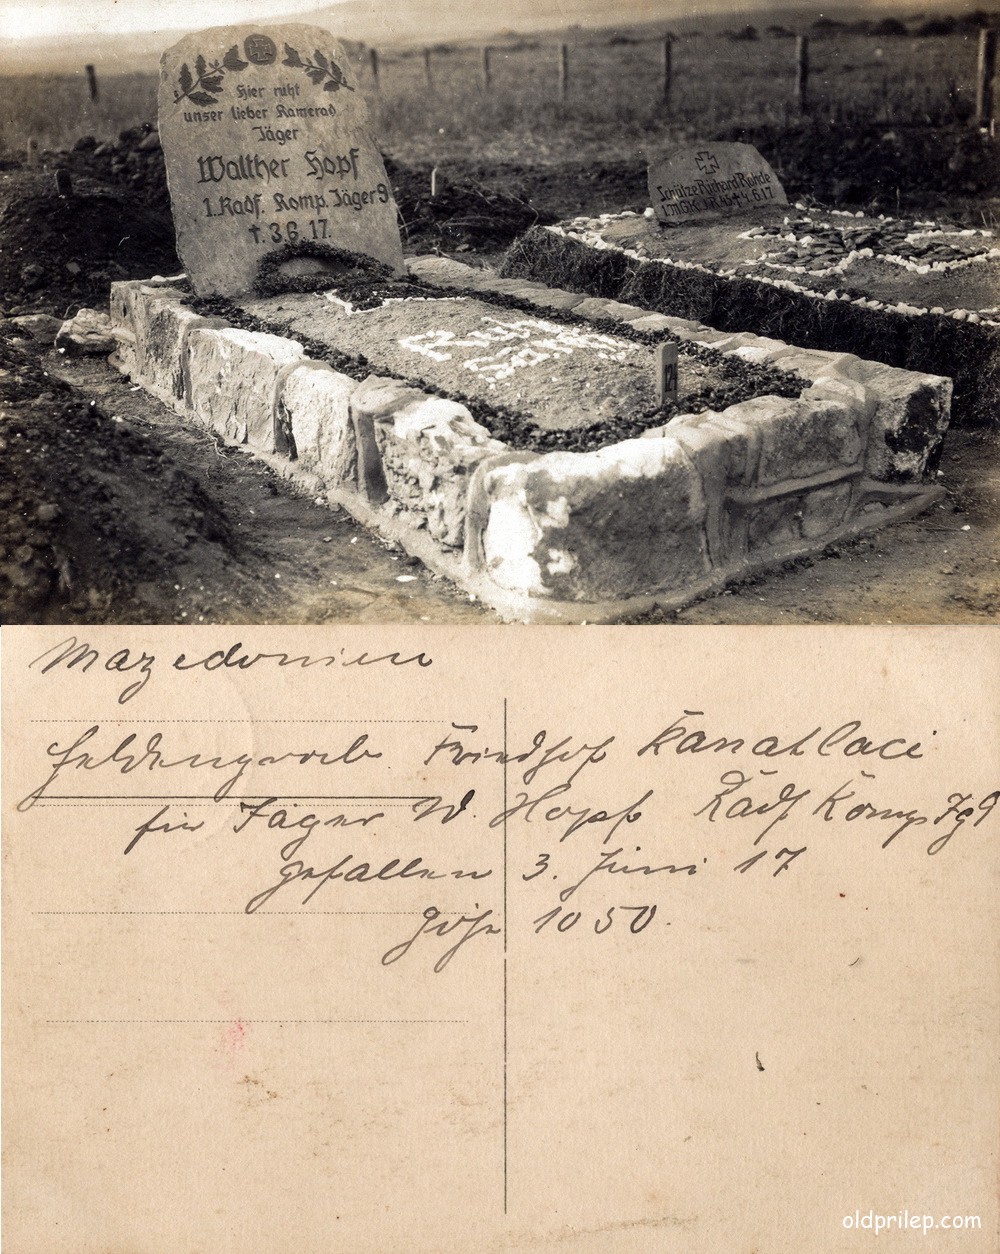 Hier ruht
unser lieber Kamerad
Jäger
Walther Hopf
1. Radf. Komp. Jäger 9
†. 3.6.17.
Schütze Richard Rohde
† 4.6.17.
Ruhe
sanft
124
Mazedonien
Heldengrab Friedhof Kanatlaci
für Jäger W. Hopf Radf Komp Jg 9
gefallen 3. Juni 17
Höhe 1050.
oldprilep.com